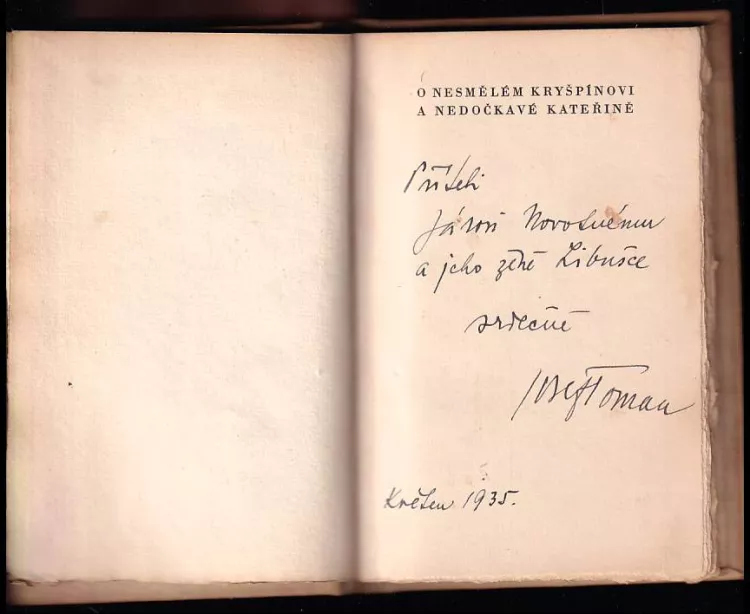 O NESMĚLÉM KRYŠPÍNOVI
A NEDOČKAVÉ KATEŘINĚ
Příteli
Járovi Novotnému
a jeho ženě Libušce
srdečně
Josef Toman
Květen 1935.